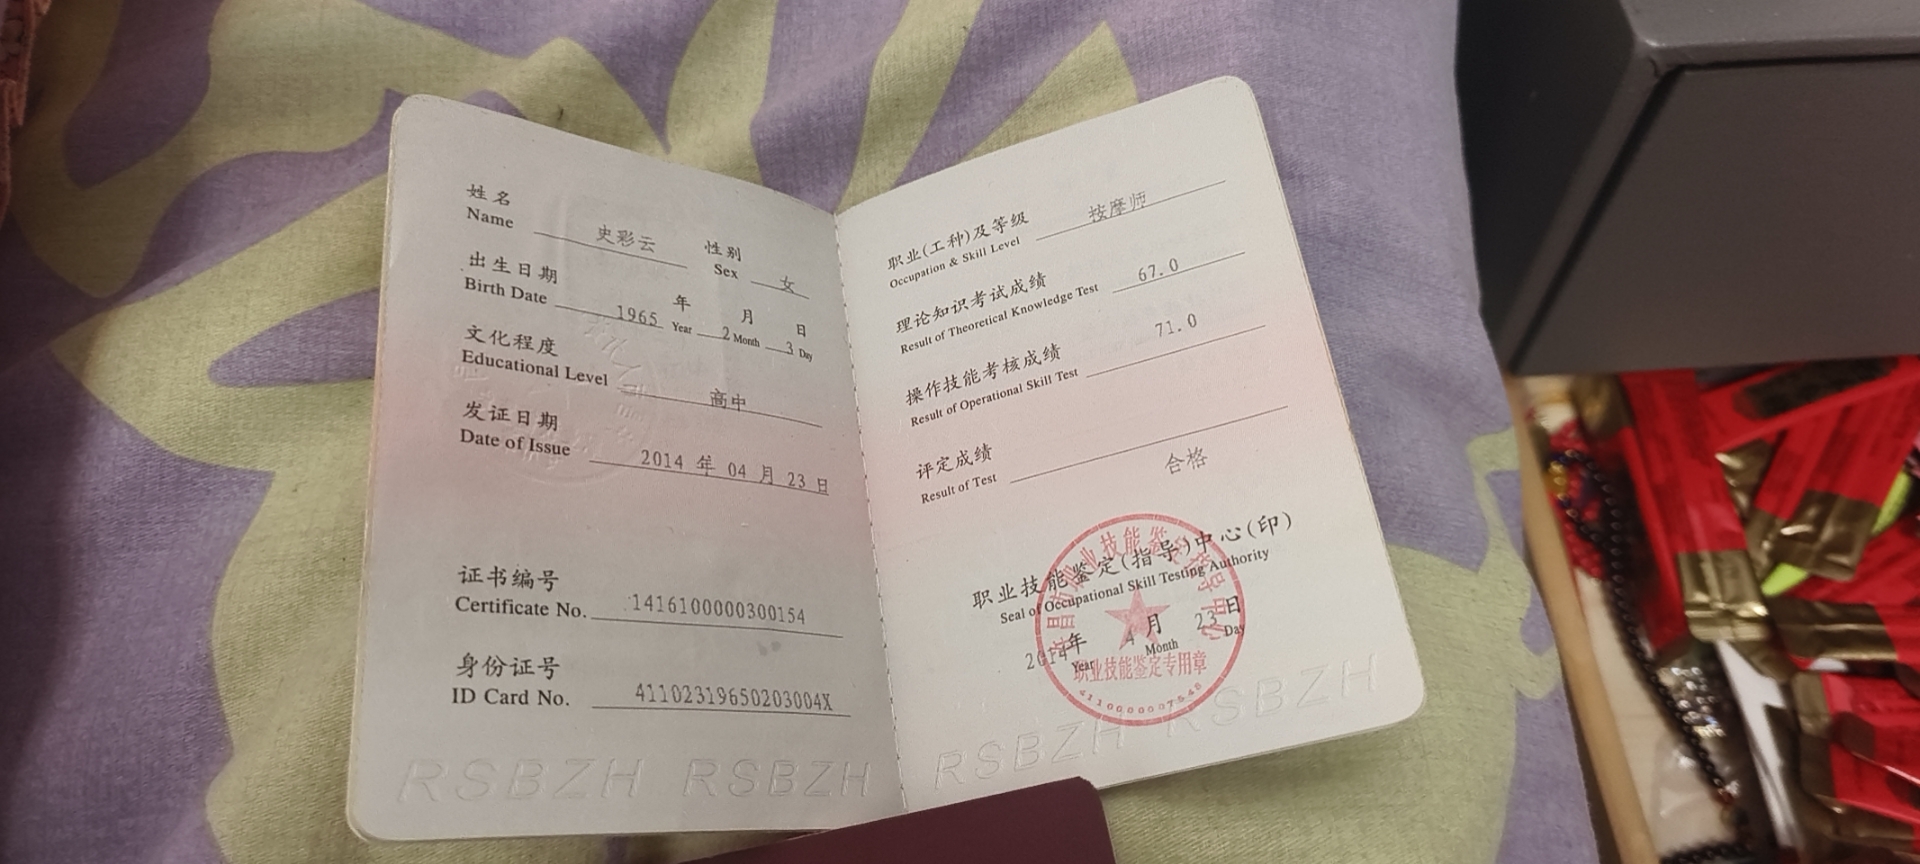 姓名 史彩云 性别 女
Name Sex
出生日期 1965 年 2 月 3 日
Birth Date Year Month Day
文化程度 高中
Educational Level
发证日期 2014 年 04 月 23 日
Date of Issue
证书编号 1416100000300154
Certificate No.
身份证号 41102319650203004X
ID Card No.
RSBZH RSBZH
职业(工种)及等级 按摩师
Occupation & Skill Level
理论知识考试成绩 67.0
Result of Theoretical Knowledge Test
操作技能考核成绩 71.0
Result of Operational Skill Test
评定成绩 合格
Result of Test
职业技能鉴定(指导)中心(印)
Seal of Occupational Skill Testing Authority
2014 年 4 月 23 日
Year Month Day
职业技能鉴定专用章
RSBZH RSBZH